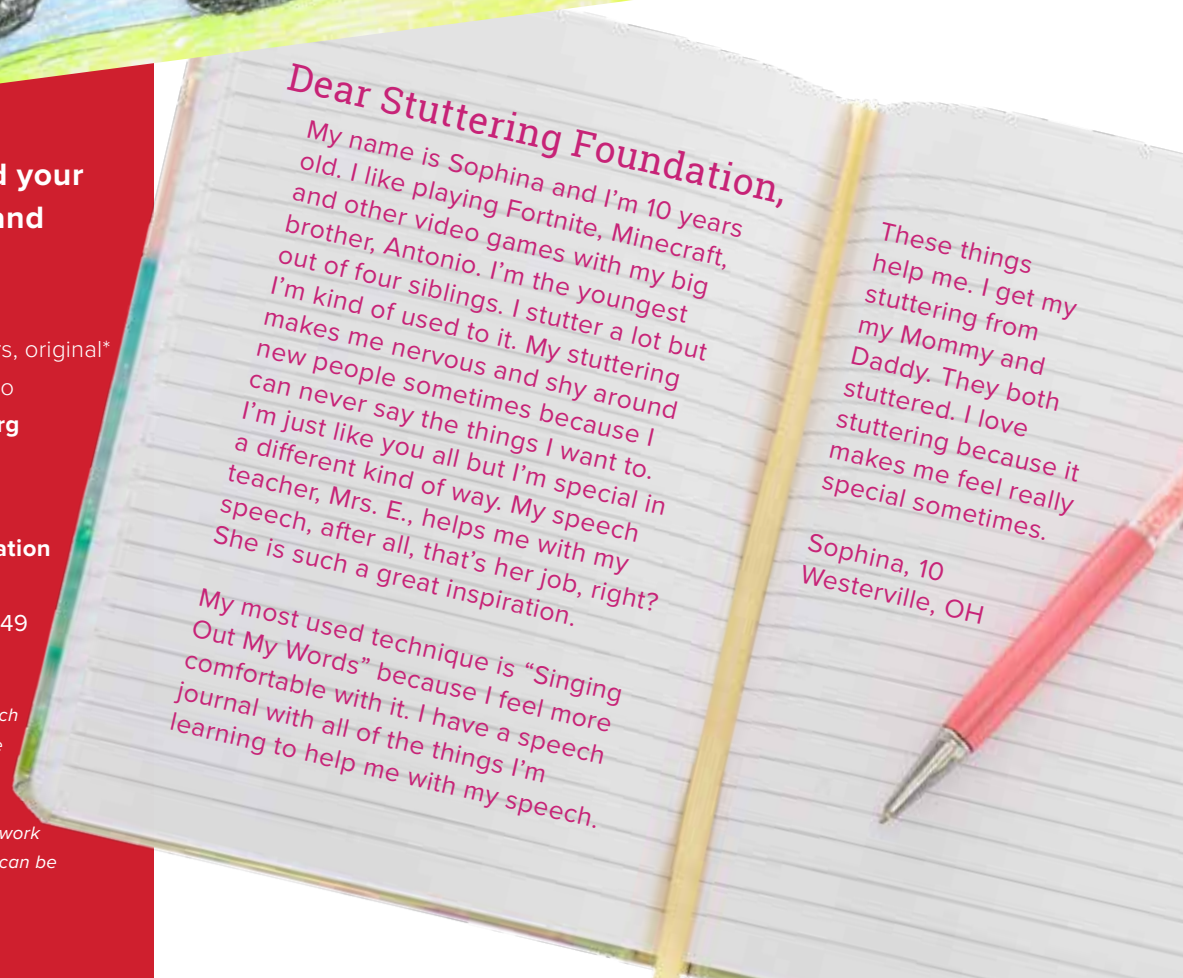 d your
and
s, original*
o
rg
ation
49
ch
e
work
can be
Dear Stuttering Foundation,
My name is Sophina and I'm 10 years
old. I like playing Fortnite, Minecraft,
and other video games with my big
brother, Antonio. I'm the youngest
out of four siblings. I stutter a lot but
I'm kind of used to it. My stuttering
makes me nervous and shy around
new people sometimes because I
can never say the things I want to.
I'm just like you all but I'm special in
a different kind of way. My speech
teacher, Mrs. E., helps me with my
speech, after all, that's her job, right?
She is such a great inspiration.
My most used technique is “Singing
Out My Words” because I feel more
comfortable with it. I have a speech
journal with all of the things I'm
learning to help me with my speech.
These things
help me. I get my
stuttering from
my Mommy and
Daddy. They both
stuttered. I love
stuttering because it
makes me feel really
special sometimes.
Sophina, 10
Westerville, OH